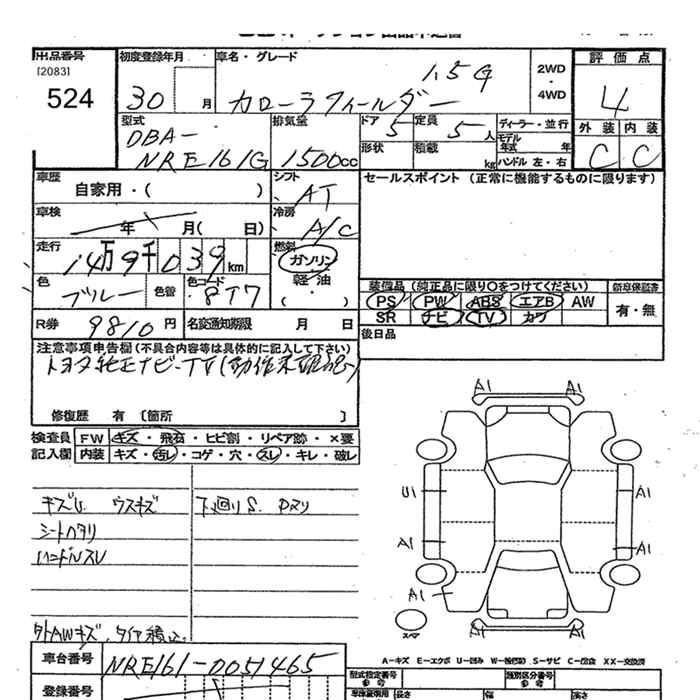 出品番号 初度登録年月 車名・グレード 評価点
[2083] 1.5G 2WD・4WD
524 30 月 カローラフィールダー 4
型式 排気量 ドア 定員 ディーラー・並行 外装 内装
DBA- 5 5人 モデル年式 年
NRE161G 1500cc 形状 積載 kg ハンドル 左・右 C C
車歴 自家用・( ) シフト AT セールスポイント (正常に機能するものに限ります)
車検 年 月( 日) 冷房 A/C
走行 14万9千039km 燃料 ガソリン
軽油
・( )
色 ブルー 色替 色コード 8T7
装備品 (純正品に限り○をつけてください) 新車保証書
PS PW ABS エアB AW 有・無
SR ナビ TV カワ
R券 9810円 名変通知期限 月 日 後日品
注意事項申告欄(不具合内容等は具体的に記入して下さい)
トヨタ純正ナビ-TV(動作未確認)
修復歴 有 [箇所 ]
検査員 FW キズ・飛石・ヒビ割・リペア跡・×要
記入欄 内装 キズ・汚レ・コゲ・穴・スレ・キレ・破レ
キズU ウスキズ 下廻りS
ハンドルスレ
AWキズ
A1 A1
U1 A1
A1 A1
A1
A1 A1
スペア
A-キズ E-エクボ U-凹み S-サビ XX-交換済
車台番号 NRE161-0051465 型式指定番号 参考 類別区分番号 参考
登録番号 長さ 幅 高さ